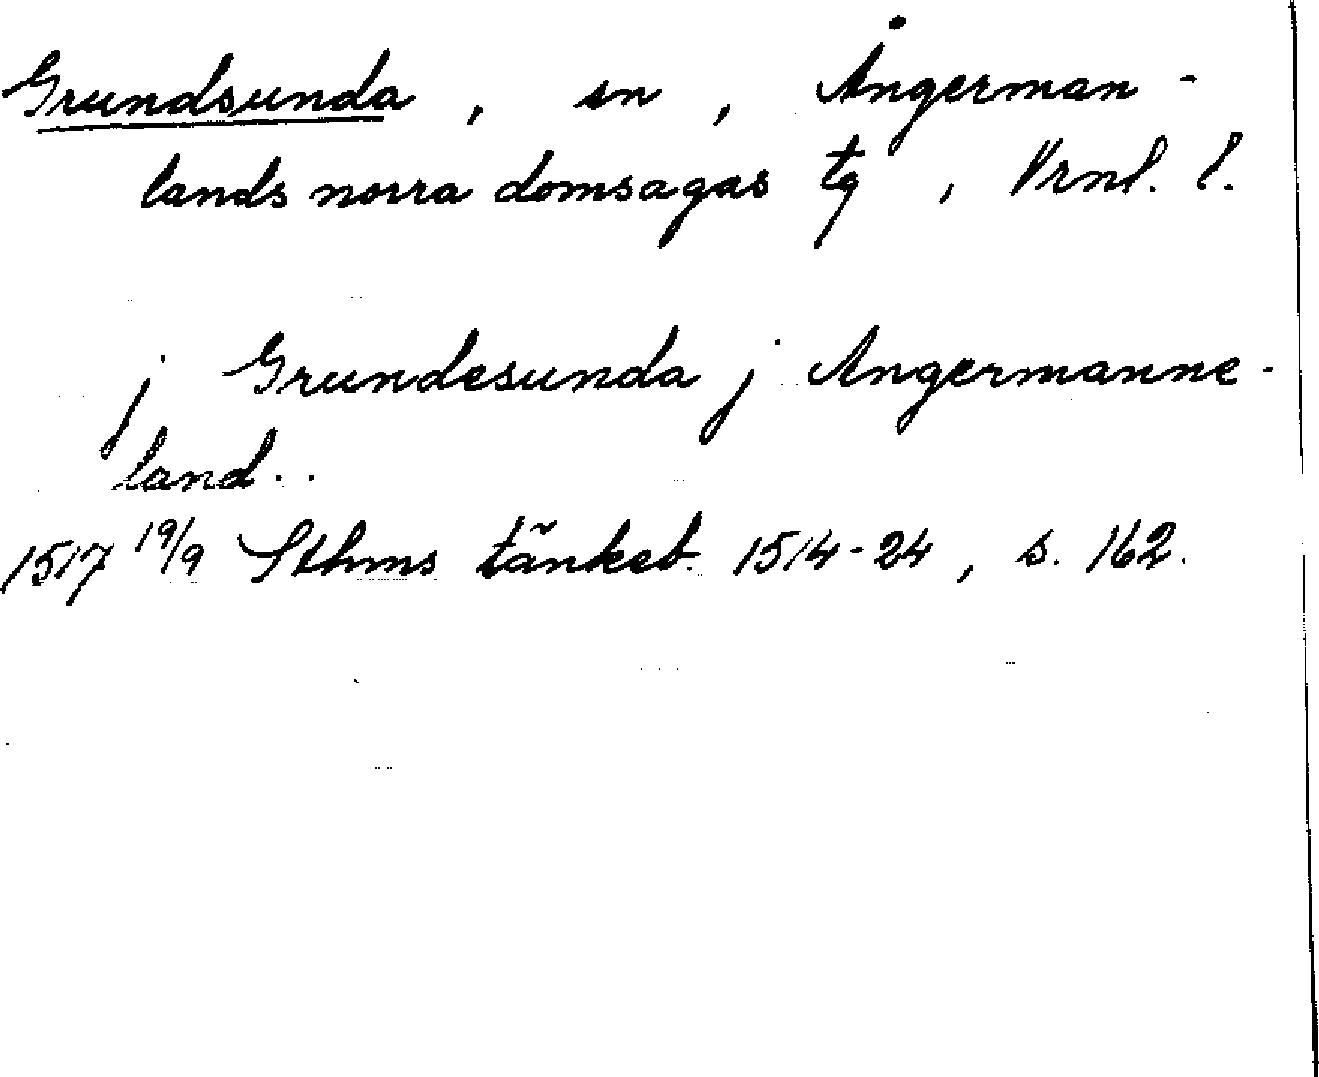 Grundsunda, sn, Ångerman-
lands norra domsagas tg, Vrnl. l.
j Grundesunda j Angermanne-
land..
1517 19/9 Sthms tänkeb. 1514-24, s. 162.